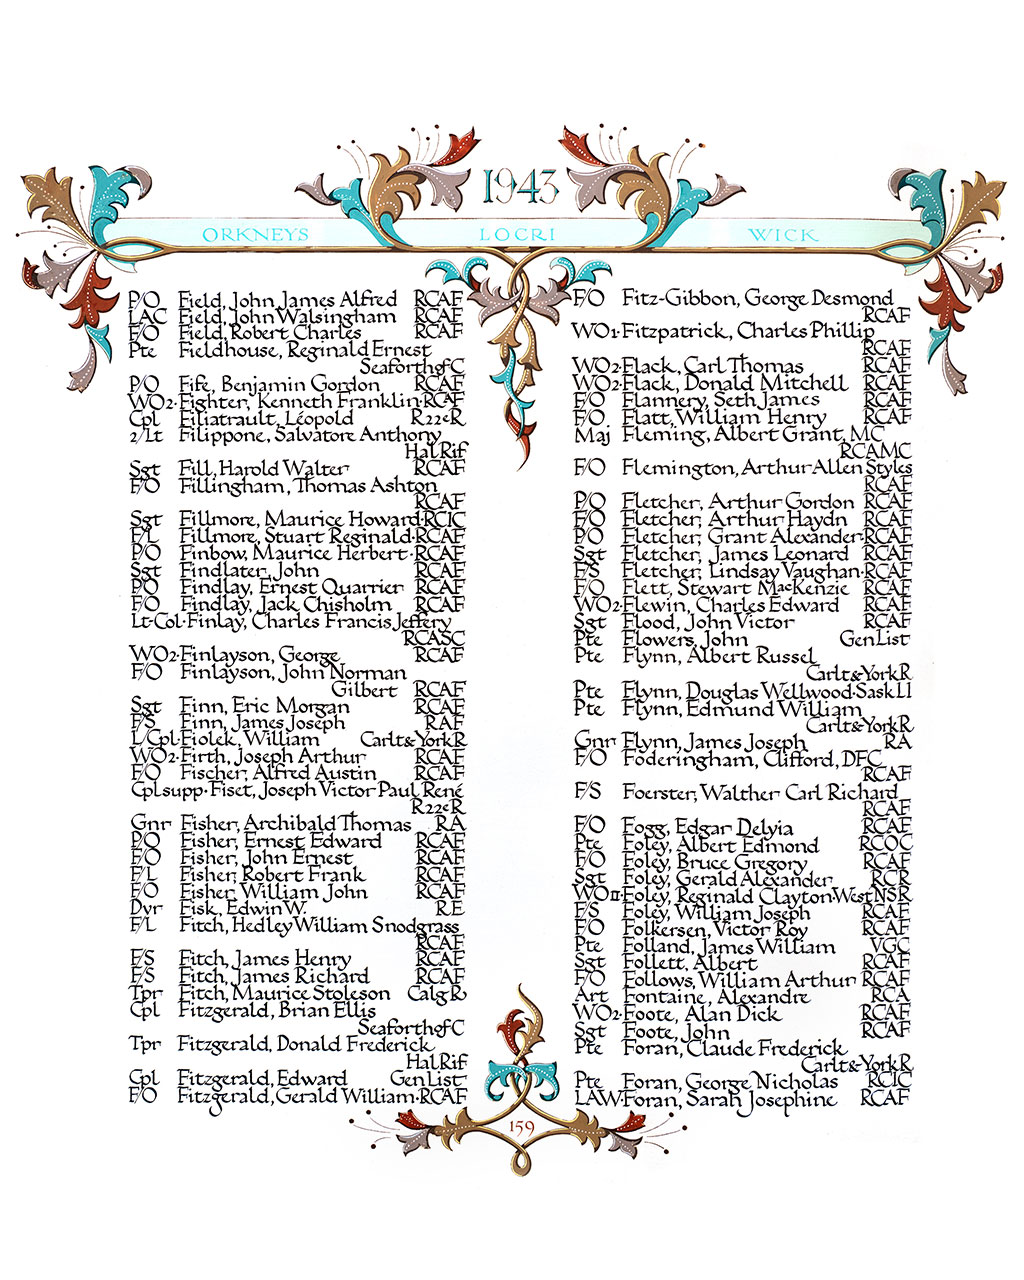 1943
ORKNEYS LOCRI WICK
P/O Field, John James Alfred RCAF
LAC Field, John Walsingham RCAF
F/O Field, Robert Charles RCAF
Pte Fieldhouse, Reginald Ernest
Seaforth of C
P/O Fife, Benjamin Gordon RCAF
WO2·Fighter, Kenneth Franklin·RCAF
Cpl Filiatrault, Léopold R22eR
2/Lt Filippone, Salvatore Anthony
Hal Rif
Sgt Fill, Harold Walter RCAF
F/O Fillingham, Thomas Ashton
RCAF
Sgt Fillmore, Maurice Howard·RCIC
F/L Fillmore, Stuart Reginald·RCAF
P/O Finbow, Maurice Herbert·RCAF
Sgt Findlater, John RCAF
P/O Findlay, Ernest Quarrier RCAF
F/O Findlay, Jack Chisholm RCAF
Lt-Col·Finlay, Charles Francis Jeffery
RCASC
WO2·Finlayson, George RCAF
F/O Finlayson, John Norman
Gilbert RCAF
Sgt Finn, Eric Morgan RCAF
F/S Finn, James Joseph RAF
L/Cpl·Fiolek, William Carlt&YorkR
WO2·Firth, Joseph Arthur RCAF
F/O Fischer, Alfred Austin RCAF
Cpl supp·Fiset, Joseph Victor Paul René
R22eR
Gnr Fisher, Archibald Thomas RA
P/O Fisher, Ernest Edward RCAF
F/O Fisher, John Ernest RCAF
F/L Fisher, Robert Frank RCAF
F/O Fisher, William John RCAF
Dvr Fisk, Edwin W. RE
F/L Fitch, Hedley William Snodgrass
RCAF
F/S Fitch, James Henry RCAF
F/S Fitch, James Richard RCAF
Tpr Fitch, Maurice Stoleson CalgR
Cpl Fitzgerald, Brian Ellis
Seaforth of C
Tpr Fitzgerald, Donald Frederick
Hal Rif
Cpl Fitzgerald, Edward Gen List
F/O Fitzgerald, Gerald William·RCAF
F/O Fitz-Gibbon, George Desmond
RCAF
WO1·Fitzpatrick, Charles Phillip
RCAF
WO2·Flack, Carl Thomas RCAF
WO2·Flack, Donald Mitchell RCAF
F/O Flannery, Seth James RCAF
F/O Flatt, William Henry RCAF
Maj Fleming, Albert Grant, MC
RCAMC
F/O Flemington, Arthur Allen Styles
RCAF
P/O Fletcher, Arthur Gordon RCAF
F/O Fletcher, Arthur Haydn RCAF
P/O Fletcher, Grant Alexander·RCAF
Sgt Fletcher, James Leonard RCAF
F/S Fletcher, Lindsay Vaughan·RCAF
F/O Flett, Stewart MacKenzie RCAF
WO2·Flewin, Charles Edward RCAF
Sgt Flood, John Victor RCAF
Pte Flowers, John Gen List
Pte Flynn, Albert Russel
Carlt&YorkR
Pte Flynn, Douglas Wellwood·Sask LI
Pte Flynn, Edmund William
Carlt&YorkR
Gnr Flynn, James Joseph RA
F/O Foderingham, Clifford, DFC
RCAF
F/S Foerster, Walther Carl Richard
RCAF
F/O Fogg, Edgar Delyia RCAF
Pte Foley, Albert Edmond RCOC
F/O Foley, Bruce Gregory RCAF
Sgt Foley, Gerald Alexander RCR
WOII·Foley, Reginald Clayton·West NSR
F/S Foley, William Joseph RCAF
F/O Folkersen, Victor Roy RCAF
Pte Folland, James William VGC
Sgt Follett, Albert RCAF
F/O Follows, William Arthur RCAF
Art Fontaine, Alexandre RCA
WO2·Foote, Alan Dick RCAF
Sgt Foote, John RCAF
Pte Foran, Claude Frederick
Carlt&YorkR
Pte Foran, George Nicholas RCIC
LAW·Foran, Sarah Josephine RCAF
159